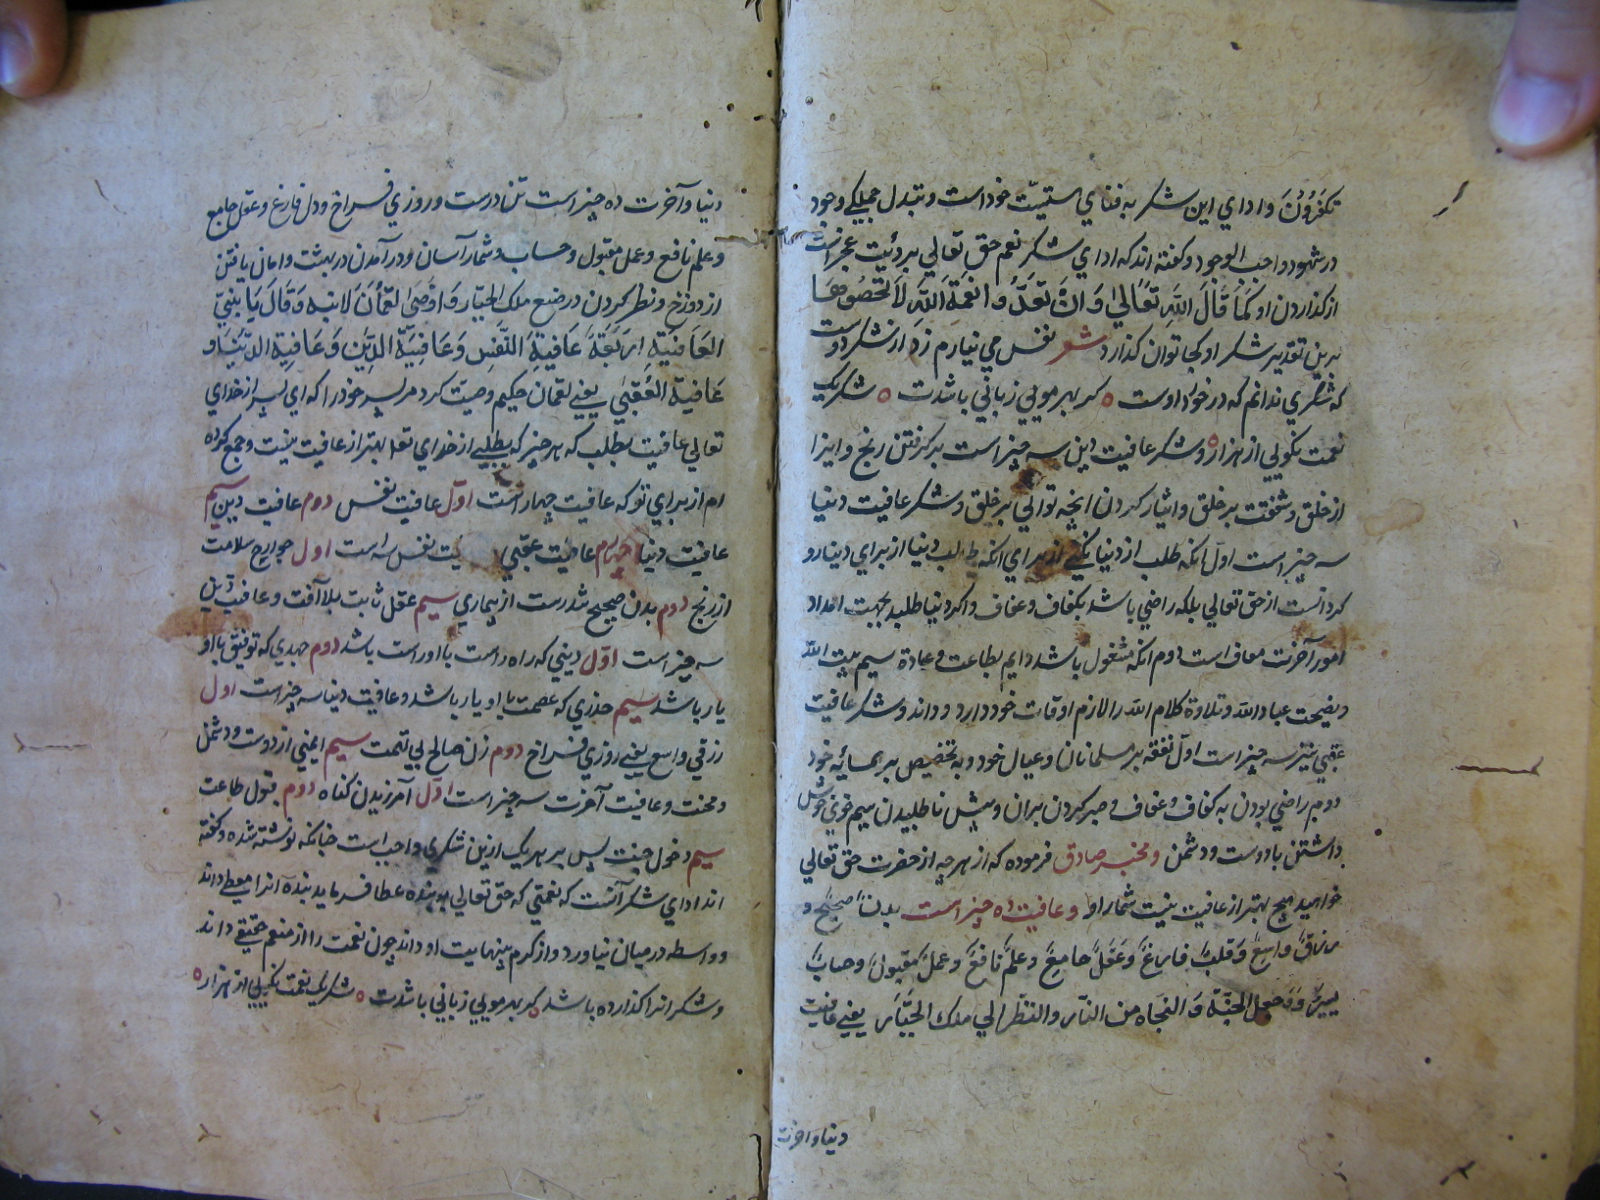 تكفرون و اداي اين شكر به فناي هستيت خود است و تبدل جملكي وجود
در شهود واجب الوجود و كفته اند كه اداي شكر نعم حق تعالي برديت عجز است
از كذاردن او كما قال الله تعالي و ان تعدوا نعمة الله لا تحصوها
برين تقدير شكر او كجا توان كذارد شعر نفس مي نيارم زد از شكر دوست
كه شكري ندانم كه در خورد اوست ه كر بهر مويي زباني باشدت ه شكر يك
نعمت نكويي از هزار ه و شكر عافيت دين سه چيز است بر كرفتن رنج و ايزا
از خلق و شفقت بر خلق و ايثار كردن انچه تواني بر خلق و شكر عافيت دنيا
سه چيز است اول آنكه طلب از دنيا نكني از براي انكه طالب دنيا از براي دينارو
كردانست از حق تعالي بلكه راضي باشد بكفاف و عفاف و اكر دنيا طلبد بجهت امداد
امور آخرت معاف است دوم انكه مشغول باشد دايم بطاعت و عبادة سيم بيت الله
و نصيحت عباد الله و تلاوة كلام الله را لازم اوقات خود دارد و داند و شكر عافيت
عقبي نيز سه چيز است اول نفقه بر مسلمانان و عيال خود و به تخصيص بر همسايه خود
دوم راضي بودن به كفاف و عفاف و صبر كردن بران و بيش نا طلبيدن سيم خوي خوش
داشتن با دوست و دشمن و مخبر صادق فرموده كه از هر چه از حضرت حق تعالي
خواهيد هيچ بهتر از عافيت نيست شمارا و و عافيت ده چيز است بدنا صحيح و
رزاق واسع و قلب فارغ و عقل جامع و علم نافع و عمل مقبول و حساب
يسير و دخول الجنة و النجاه من النار و النظر الي ملك الجبار يعني عافيت
دنيا و اخرت
دنيا و آخرت ده چيز است تن درست و روزي فراخ و دل فارغ و عقل جامع
و علم نافع و عمل مقبول و حساب و شمار آسان و در آمدن در بهشت و امان يافتن
از دوزخ و نظر كردن در صنع ملك الجبار و اوصي لقمان لابنه و قال يا بني
العافية اربعة عافية النفس و عافية الدين و عافية الدنيا و
عافية العقبي يعني لقمان حكيم وصيت كرد مر پسر خود را كه اي پسر از خداي
تعالي عافيت بطلب كه هر چيز كه بطلبي از خداي تعا بهتر از عافيت نيست و جمع كرده
ام از براي تو كه عافيت چهار است اول عافيت نفس دوم عافيت دين سيم
عافيت دنيا چهارم عافيت عقبي يت نفس سه است اول جوارح سلامت
از رنج دوم بدن صحيح تندرست از بيماري سيم عقل ثابت بلا آفت و عافيت دين
سه چيز است اول ديني كه راه راست با او راست باشد دوم جهدي كه توفيق با او
يار باشد سيم حذري كه عصمت با او يار باشد و عافيت دنيا سه چيز است اول
رزقي واسع يعني روزي فراخ دوم زن صالح بي تهمت سيم ايمني از دوست و دشمن
و محنت و عافيت آخرت سه چيز است اول آمرزيدن كناه دوم قبول طاعت
سيم دخول جنت پس بر هر يك ازين شكري واجب است چنانكه نوشته شده و كفته
اند اداي شكر آنست كه نعمتي كه حق تعالي به بنده عطا فرمايد بنده آنرا معطي داند
و واسطه در ميان نياورد و از كرم بي نهايت او داند چون نعمت را از منعم حقيقي داند
و شكر انرا كذارده باشد ه كر بهر مويي زباني باشدت ه شكر يك نعمت نكويي از هزار ه